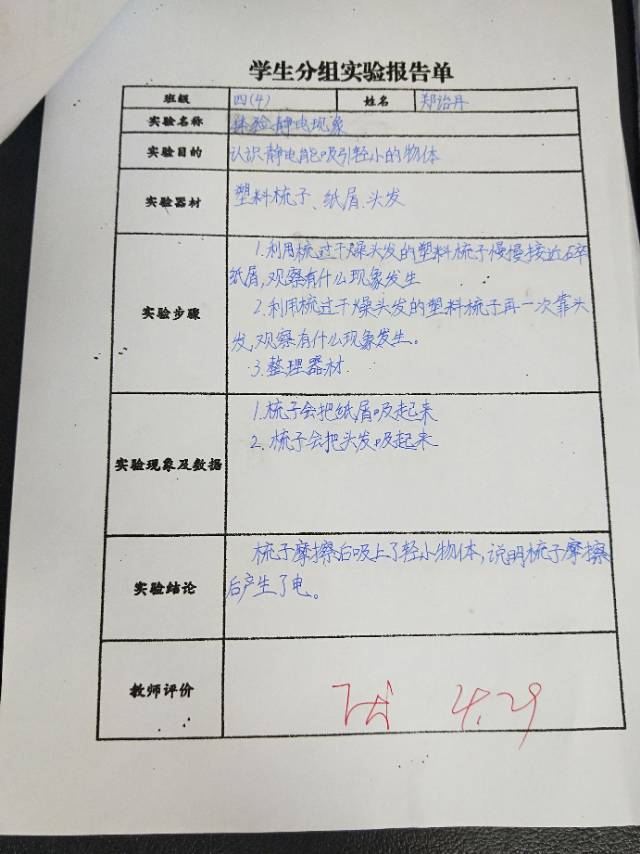 学生分组实验报告单
班级 四(4) 姓名 郑诒丹
实验名称 体验静电现象
实验目的 认识静电能吸引轻小的物体
实验器材 塑料梳子、纸屑、头发
实验步骤
1.利用梳过干燥头发的塑料梳子慢慢接近碎
纸屑,观察有什么现象发生
2.利用梳过干燥头发的塑料梳子再一次靠头
发,观察有什么现象发生。
3.整理器材.
实验现象及数据
1.梳子会把纸屑吸起来
2.梳子会把头发吸起来
实验结论
梳子摩擦后吸上了轻小物体,说明梳子摩擦
后产生了电。
教师评价
4.29